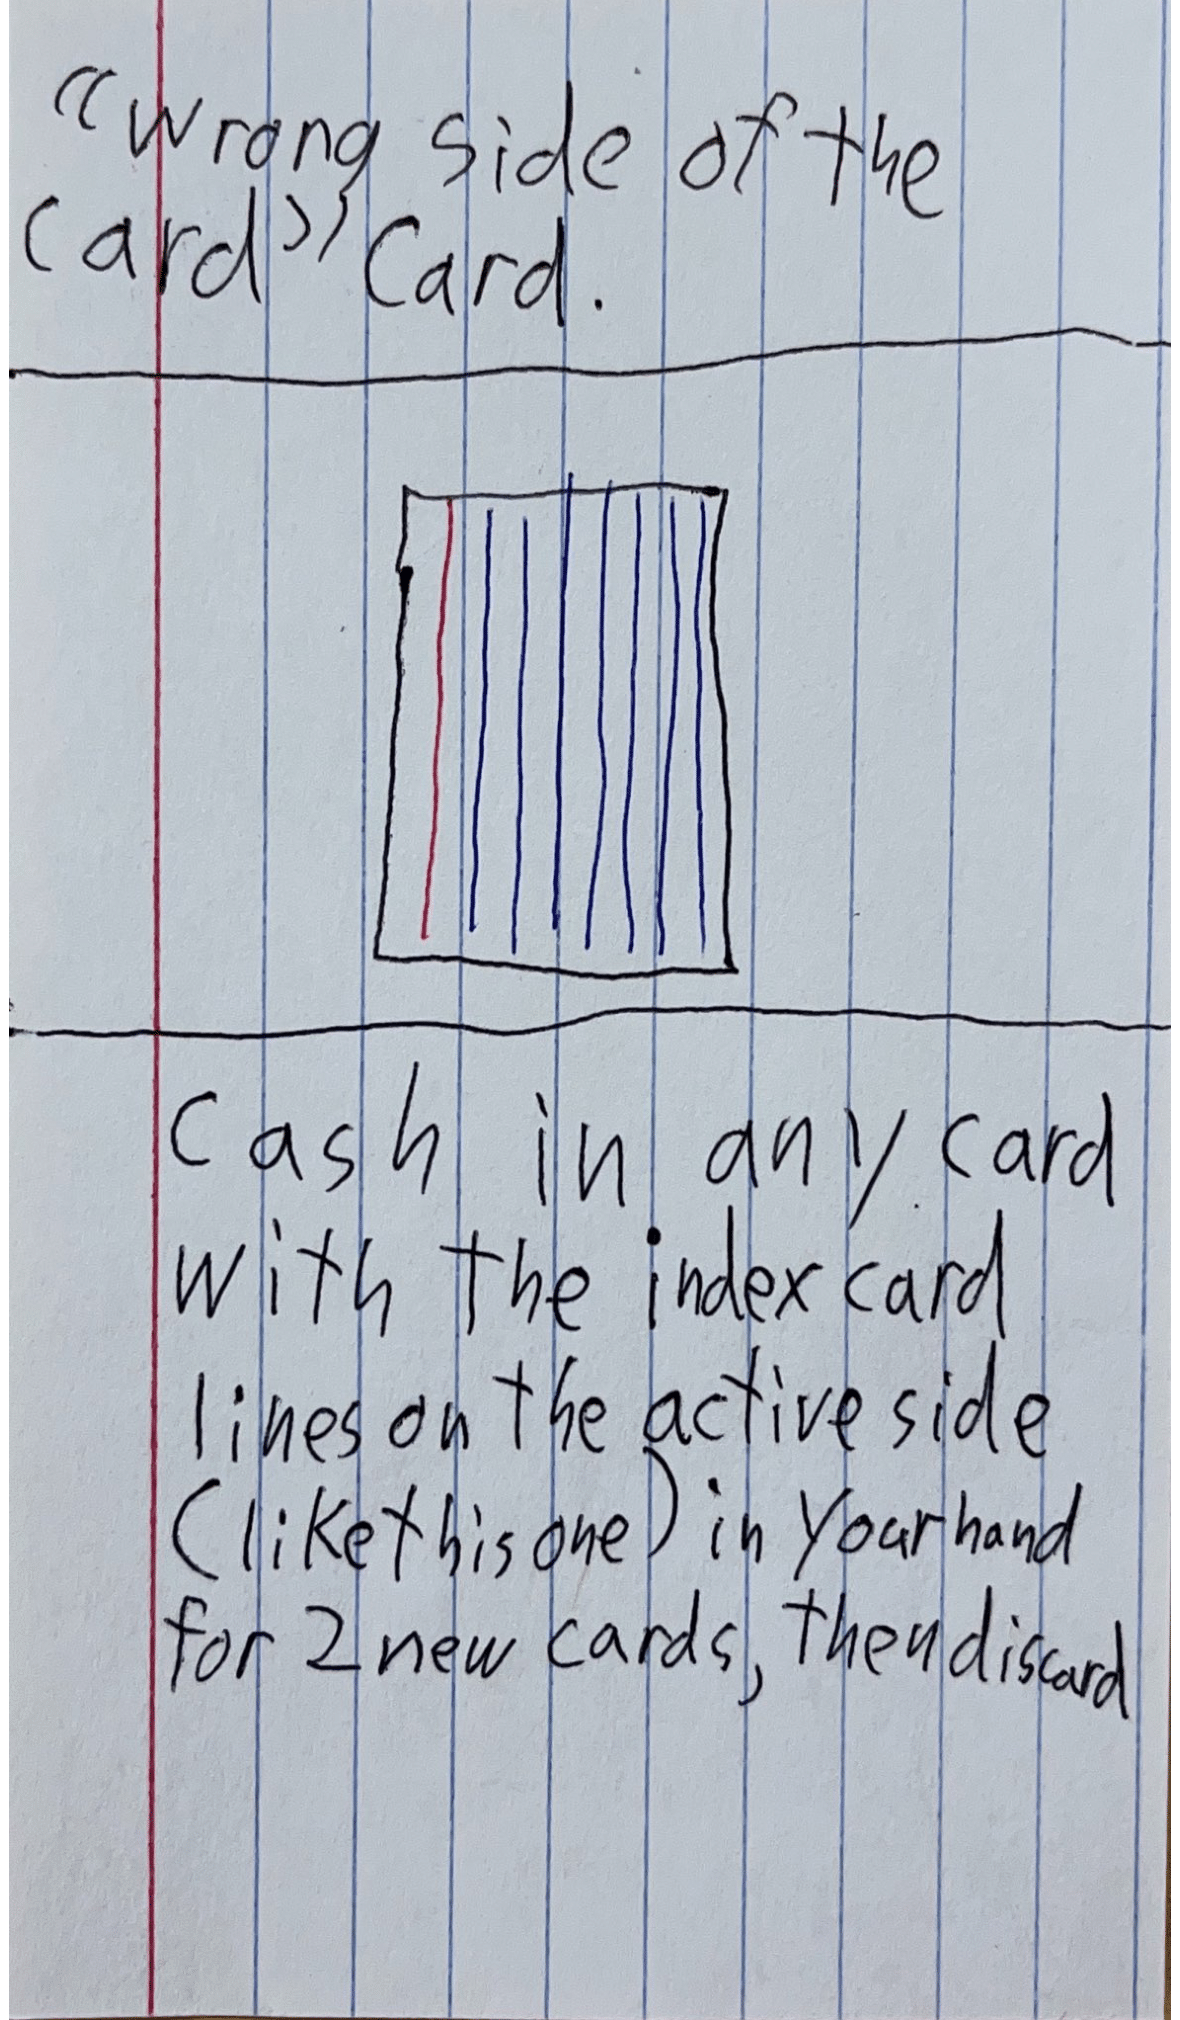 "Wrong side of the
Card" Card.
Cash in any card
with the index card
lines on the active side
(like this one) in your hand
for 2 new cards, then discard